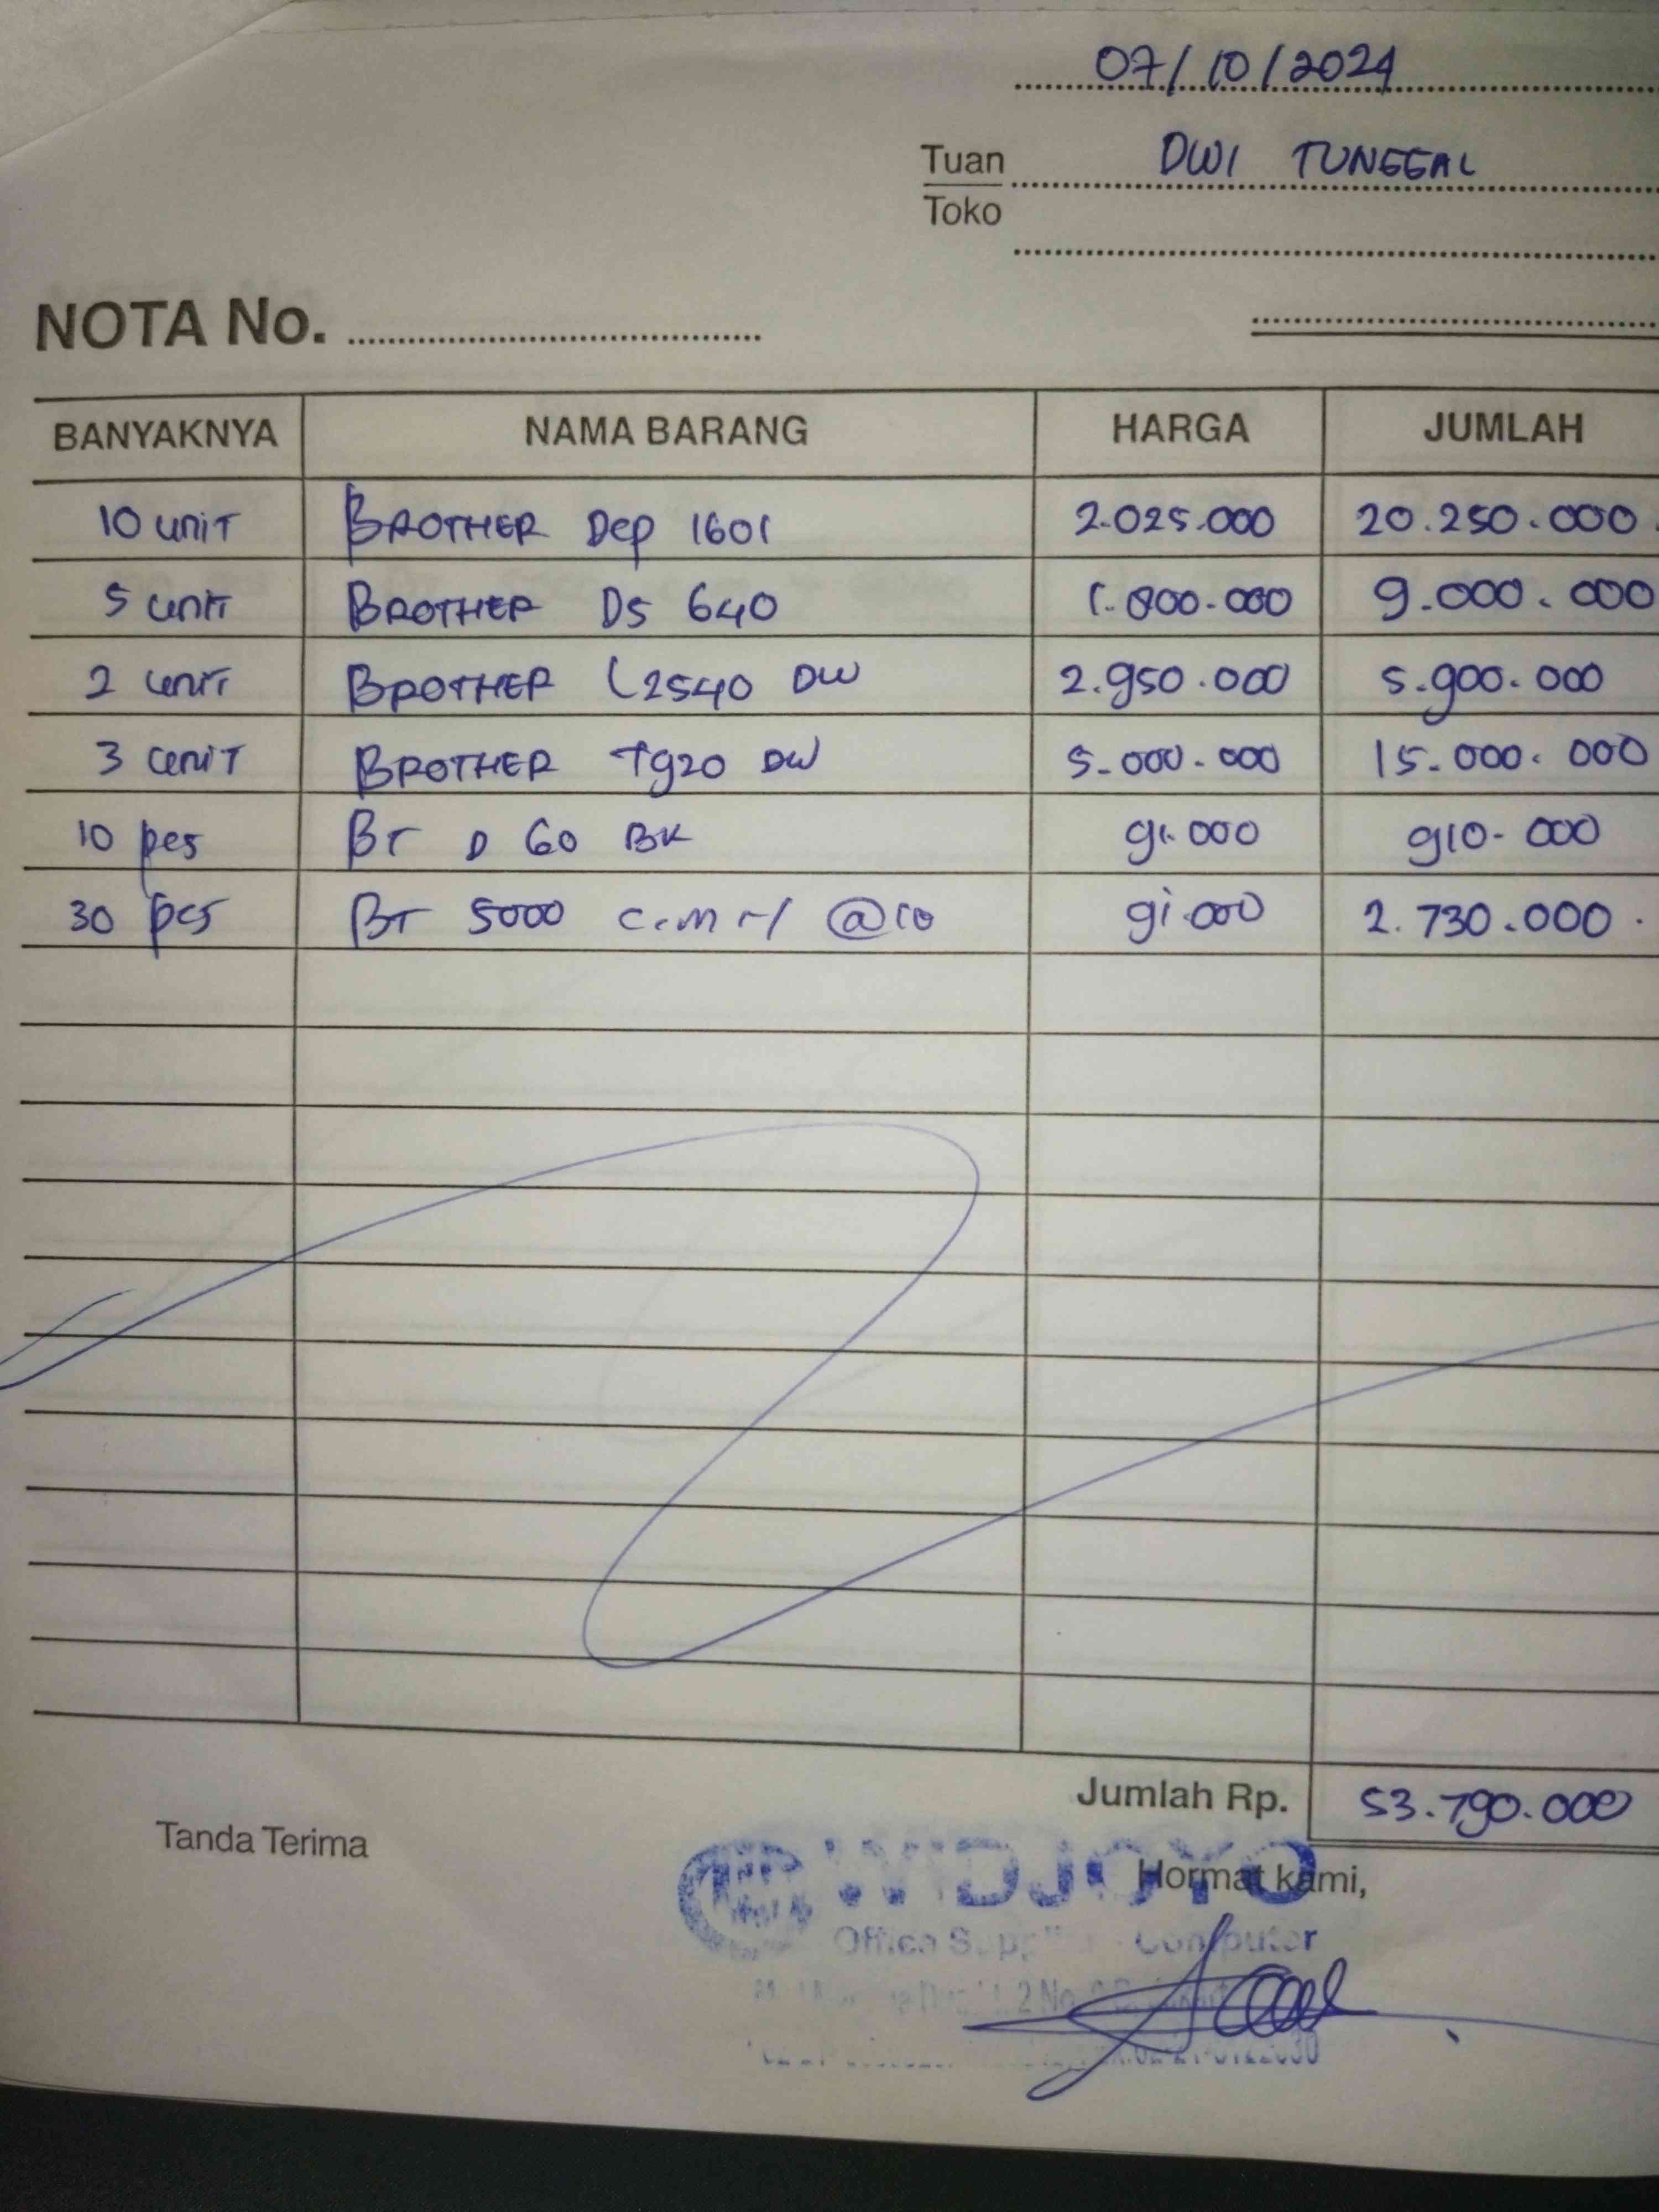 07/10/2024
Tuan DWI TUNGGAL
Toko
NOTA No.
BANYAKNYA NAMA BARANG HARGA JUMLAH
10 unit BROTHER Dcp 1601 2.025.000 20.250.000
5 unit BROTHER DS 640 1.800.000 9.000.000
2 unit BROTHER L2540 DW 2.950.000 5.900.000
3 unit BROTHER T920 DW 5.000.000 15.000.000
10 pcs BT D 60 BK 91.000 910.000
30 pcs BT 5000 @10 91.000 2.730.000
Jumlah Rp. 53.790.000
Tanda Terima
WIDJOYO
Hormat kami,
Office Computer